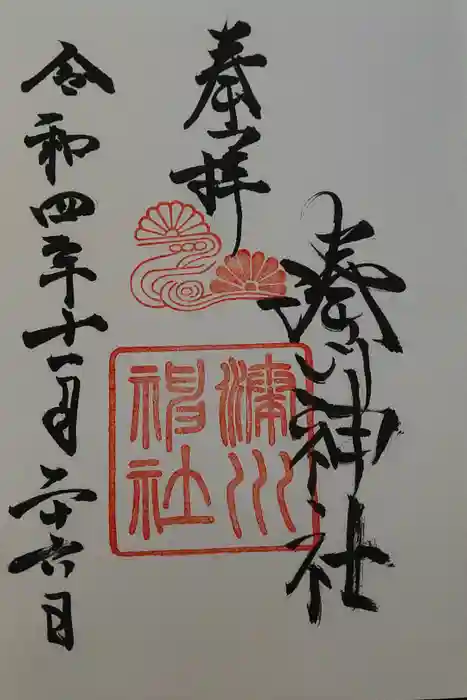 奉拝
湊川神社
湊川
神社
令和四年十一月二十六日